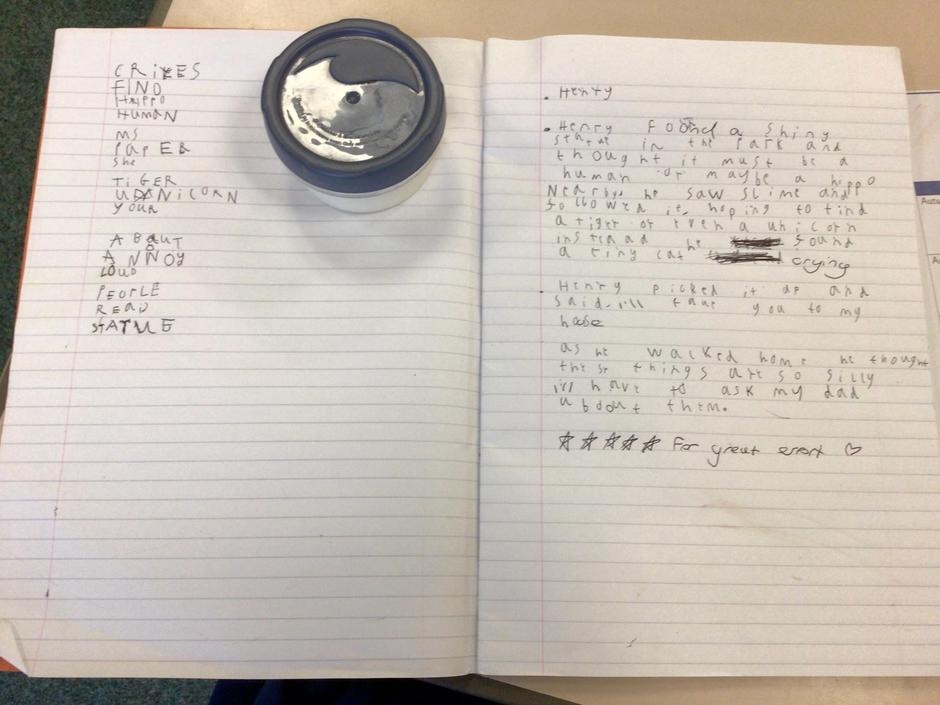 CRiES
FIND
HiPPO
HUMAN
MS
PAPER
She
TiGER
UNiCORN
YOUR
ABOUT
ANNOY
LOUD
PEOPLE
READ
StATUE
. Henry
. Henry Found a Shiny
statue in the Park and
thought it must be a
human or maybe a hippo
Nearby he saw slime and
followed it, hoping to find
a tiger or even a unicorn
instead he found
a tiny cat crying
. Henry picked it up and
said. i'll take you to my
as he walked home he thought
these things are so silly
i'll have to ask my dad
ubdout them.
☆ ☆ ☆ ☆ ☆ For great effort ♡